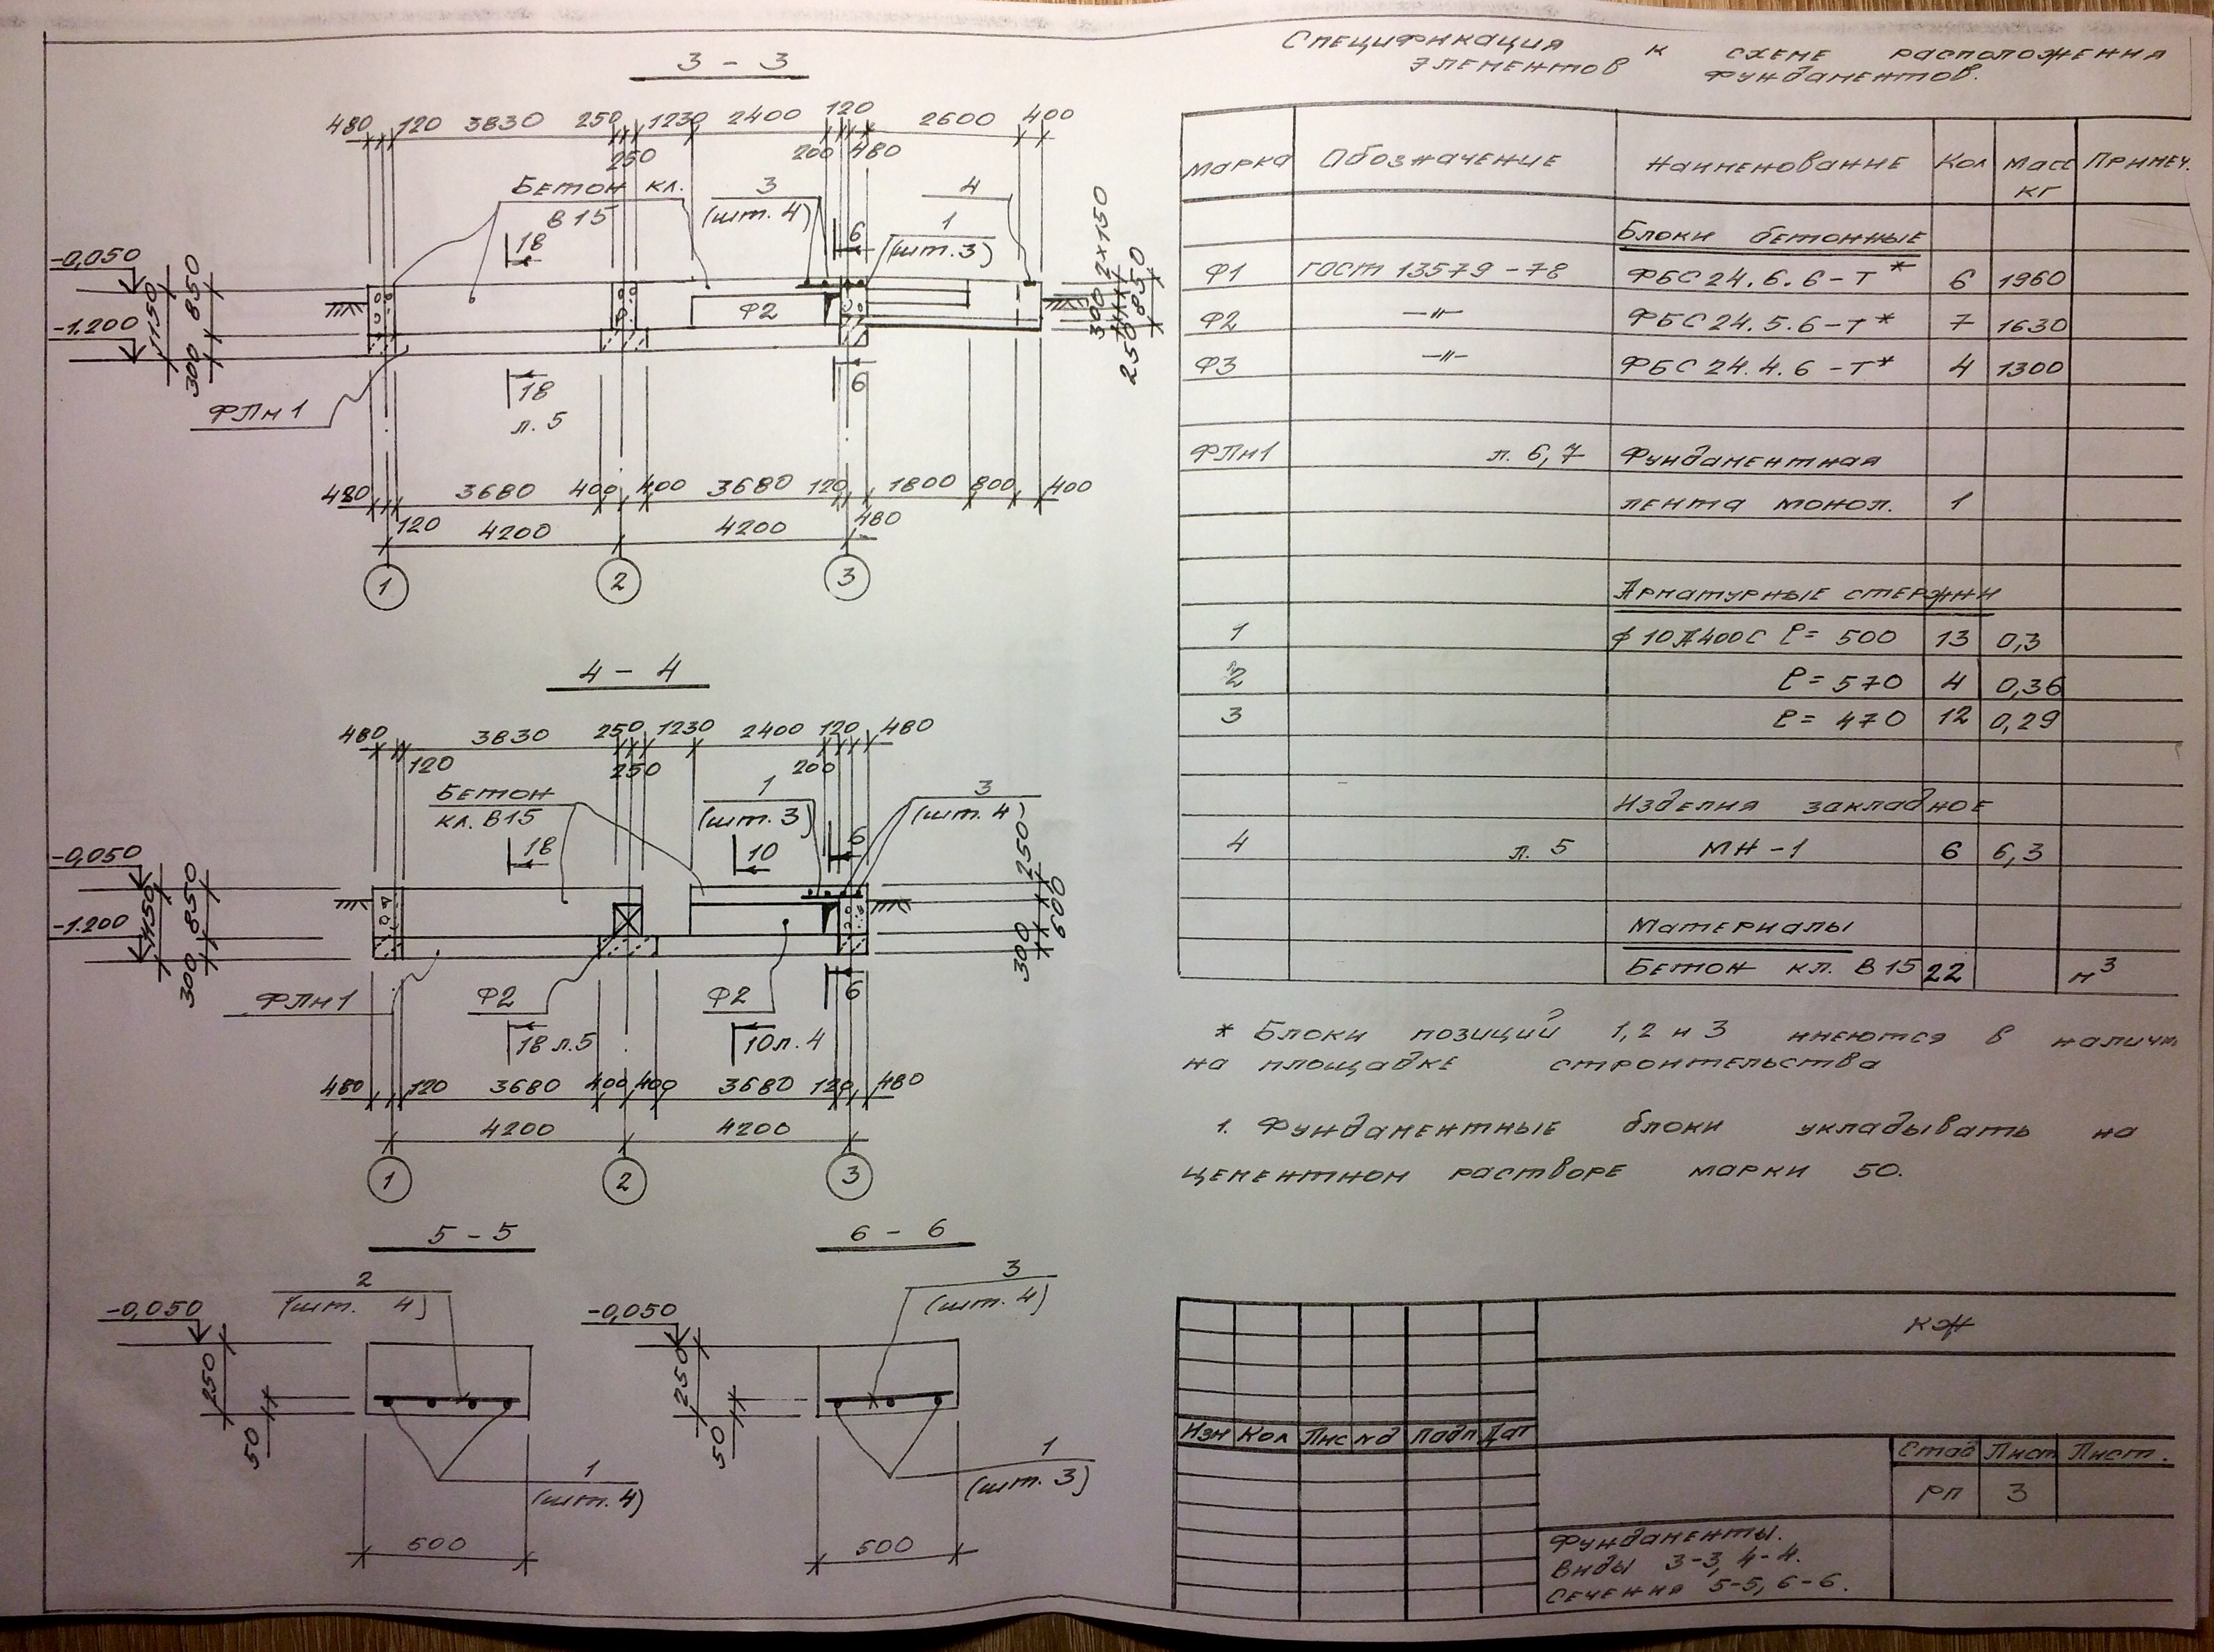 3 - 3
480 120 3830 250 1230 2400 120 2600 400
250 200 480
Бетон кл. В15
3
(шт. 4)
4
1
(шт. 3)
18
6
-0,050
-1.200
1150
300 850
Ф2
300 2×150
250 850
ФЛм1
18
л. 5
6
480 3680 400 400 3680 120 1800 800 400
120 4200 4200 480
1 2 3
4 - 4
480 3830 250 1230 2400 120 480
120 250 200
Бетон
кл. В15
1
(шт. 3)
3
(шт. 4)
18
10
6
-0,050
-1.200
1150
300 850
300 250
600
ФЛм1
Ф2
Ф2
18 л.5
10 л. 4
6
480 120 3680 400 400 3680 120 480
4200 4200
1 2 3
5 - 5
2
(шт. 4)
-0,050
250
50
1
(шт. 4)
600
6 - 6
3
(шт. 4)
-0,050
250
50
1
(шт. 3)
500
Спецификация к схеме расположения
элементов фундаментов.
Марка Обозначение Наименование Кол Масс кг Примеч.
Блоки бетонные
Ф1 ГОСТ 13579-78 ФБС 24.6.6-Т* 6 1960
Ф2 —"— ФБС 24.5.6-Т* 7 1630
Ф3 —"— ФБС 24.4.6-Т* 4 1300
ФЛм1 л. 6,7 Фундаментная
лента монол. 1
Арматурные стержни
1 ϕ10 А400С ℓ= 500 13 0,3
2 ℓ= 570 4 0,36
3 ℓ= 470 12 0,29
Изделия закладное
4 л. 5 МН-1 6 6,3
Материалы
Бетон кл. В15 22 м³
* Блоки позиций 1,2 и 3 имеются в
на площадке строительства
1. Фундаментные блоки укладывать на
цементном растворе марки 50.
КЖ
Изм Кол Лис №д Подп Дат
Стад Лист Лист.
РП 3
Фундаменты.
Виды 3-3, 4-4.
Сечения 5-5, 6-6.